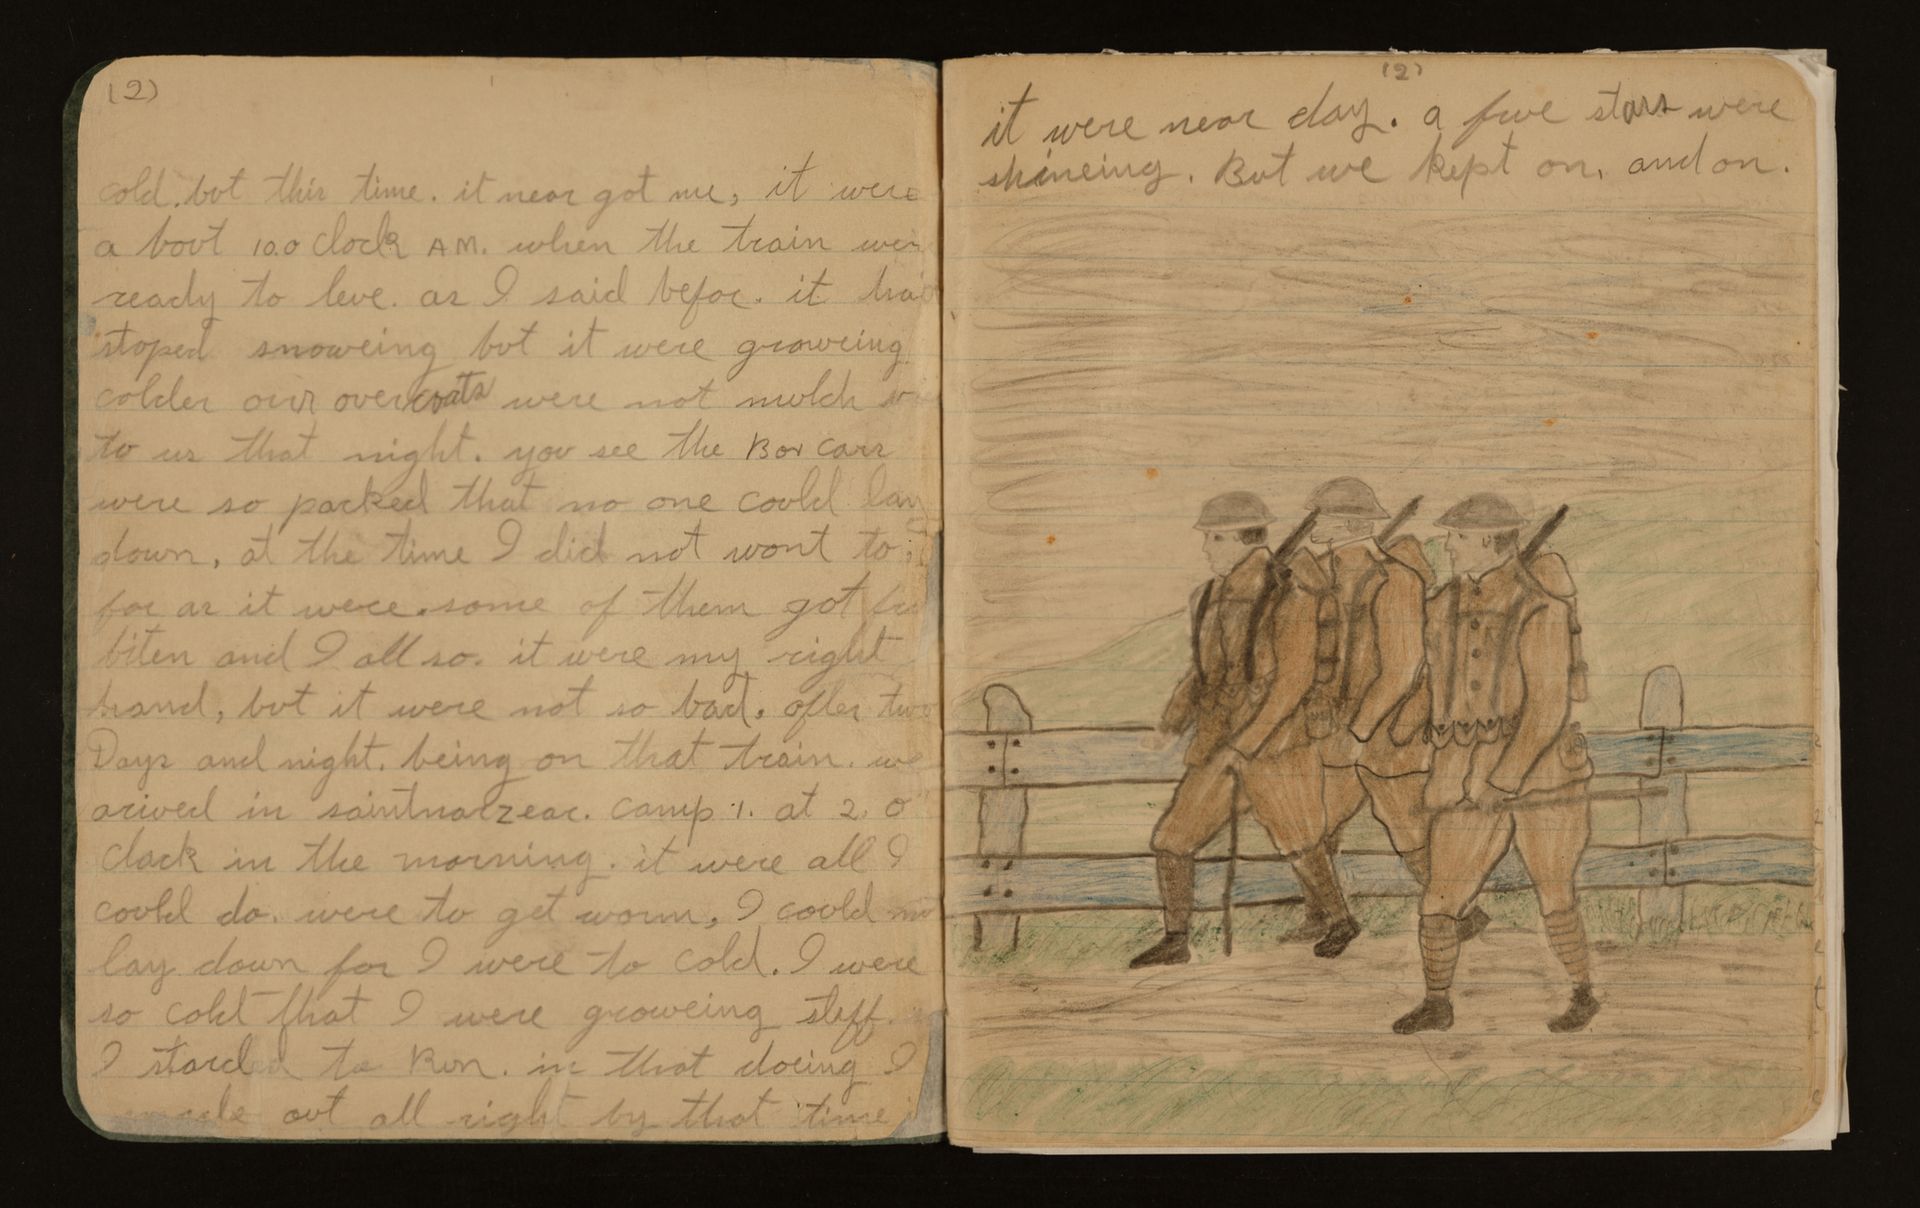 (2)
cold. but this time. it near got me, it were
a bout 10.o clock AM. when the train
ready to leve. as I said befor. it
stoped snoweing but it were groweing
colder our overcoats were not mulch
to us that night. you see the Box cars
were so packed that no one could lay
down, at the time I did not wont to
for as it were. some of them got
biten and I all so. it were my right
hand, but it were not so bad. after two
Days and night. being on that train. we
arived in saintnazear. camp 1. at 2. o
clock in the morning. it were all I
could do. were to get worm, I could
lay down for I were to cold. I were
so cold that I were groweing steff.
I starded to Run. in that doeing I
made out all right by that time
(2)
it were near day. a fwe stars were
shineing. But we kept on, and on.